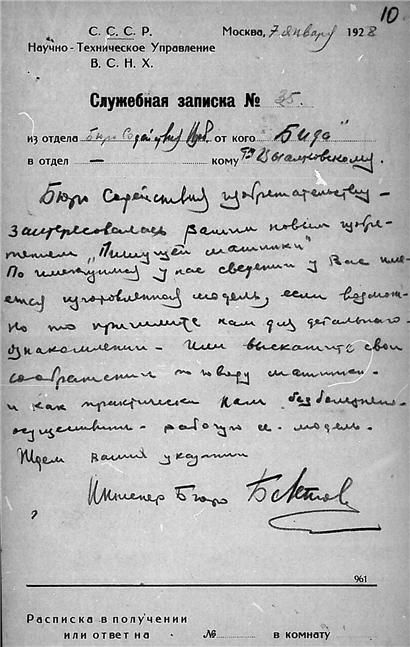 10
С. С. С. Р.
Москва, 7 января 1928
Научно-Техническое Управление
В. С. Н. Х.
Служебная записка № 35.
из отдела Бюро Содействия Изоб. от кого "Бида"
в отдел — кому тв
Бюро Содействия изобретательству
заинтересовалась вашим новым изобре-
тением "Пишущей машинки"
По имеющимся у нас сведений у Вас име-
ется изготовленная модель, если возмож-
но то пришлите нам для детального
ознакомления - Или выскажите свои
соображения по поводу машинки
и как практически нам безболезнено
осуществить - рабочую модель.
Ждем ваших указаний
Инженер Бюро
961
Расписка в получении
или ответ на № в комнату